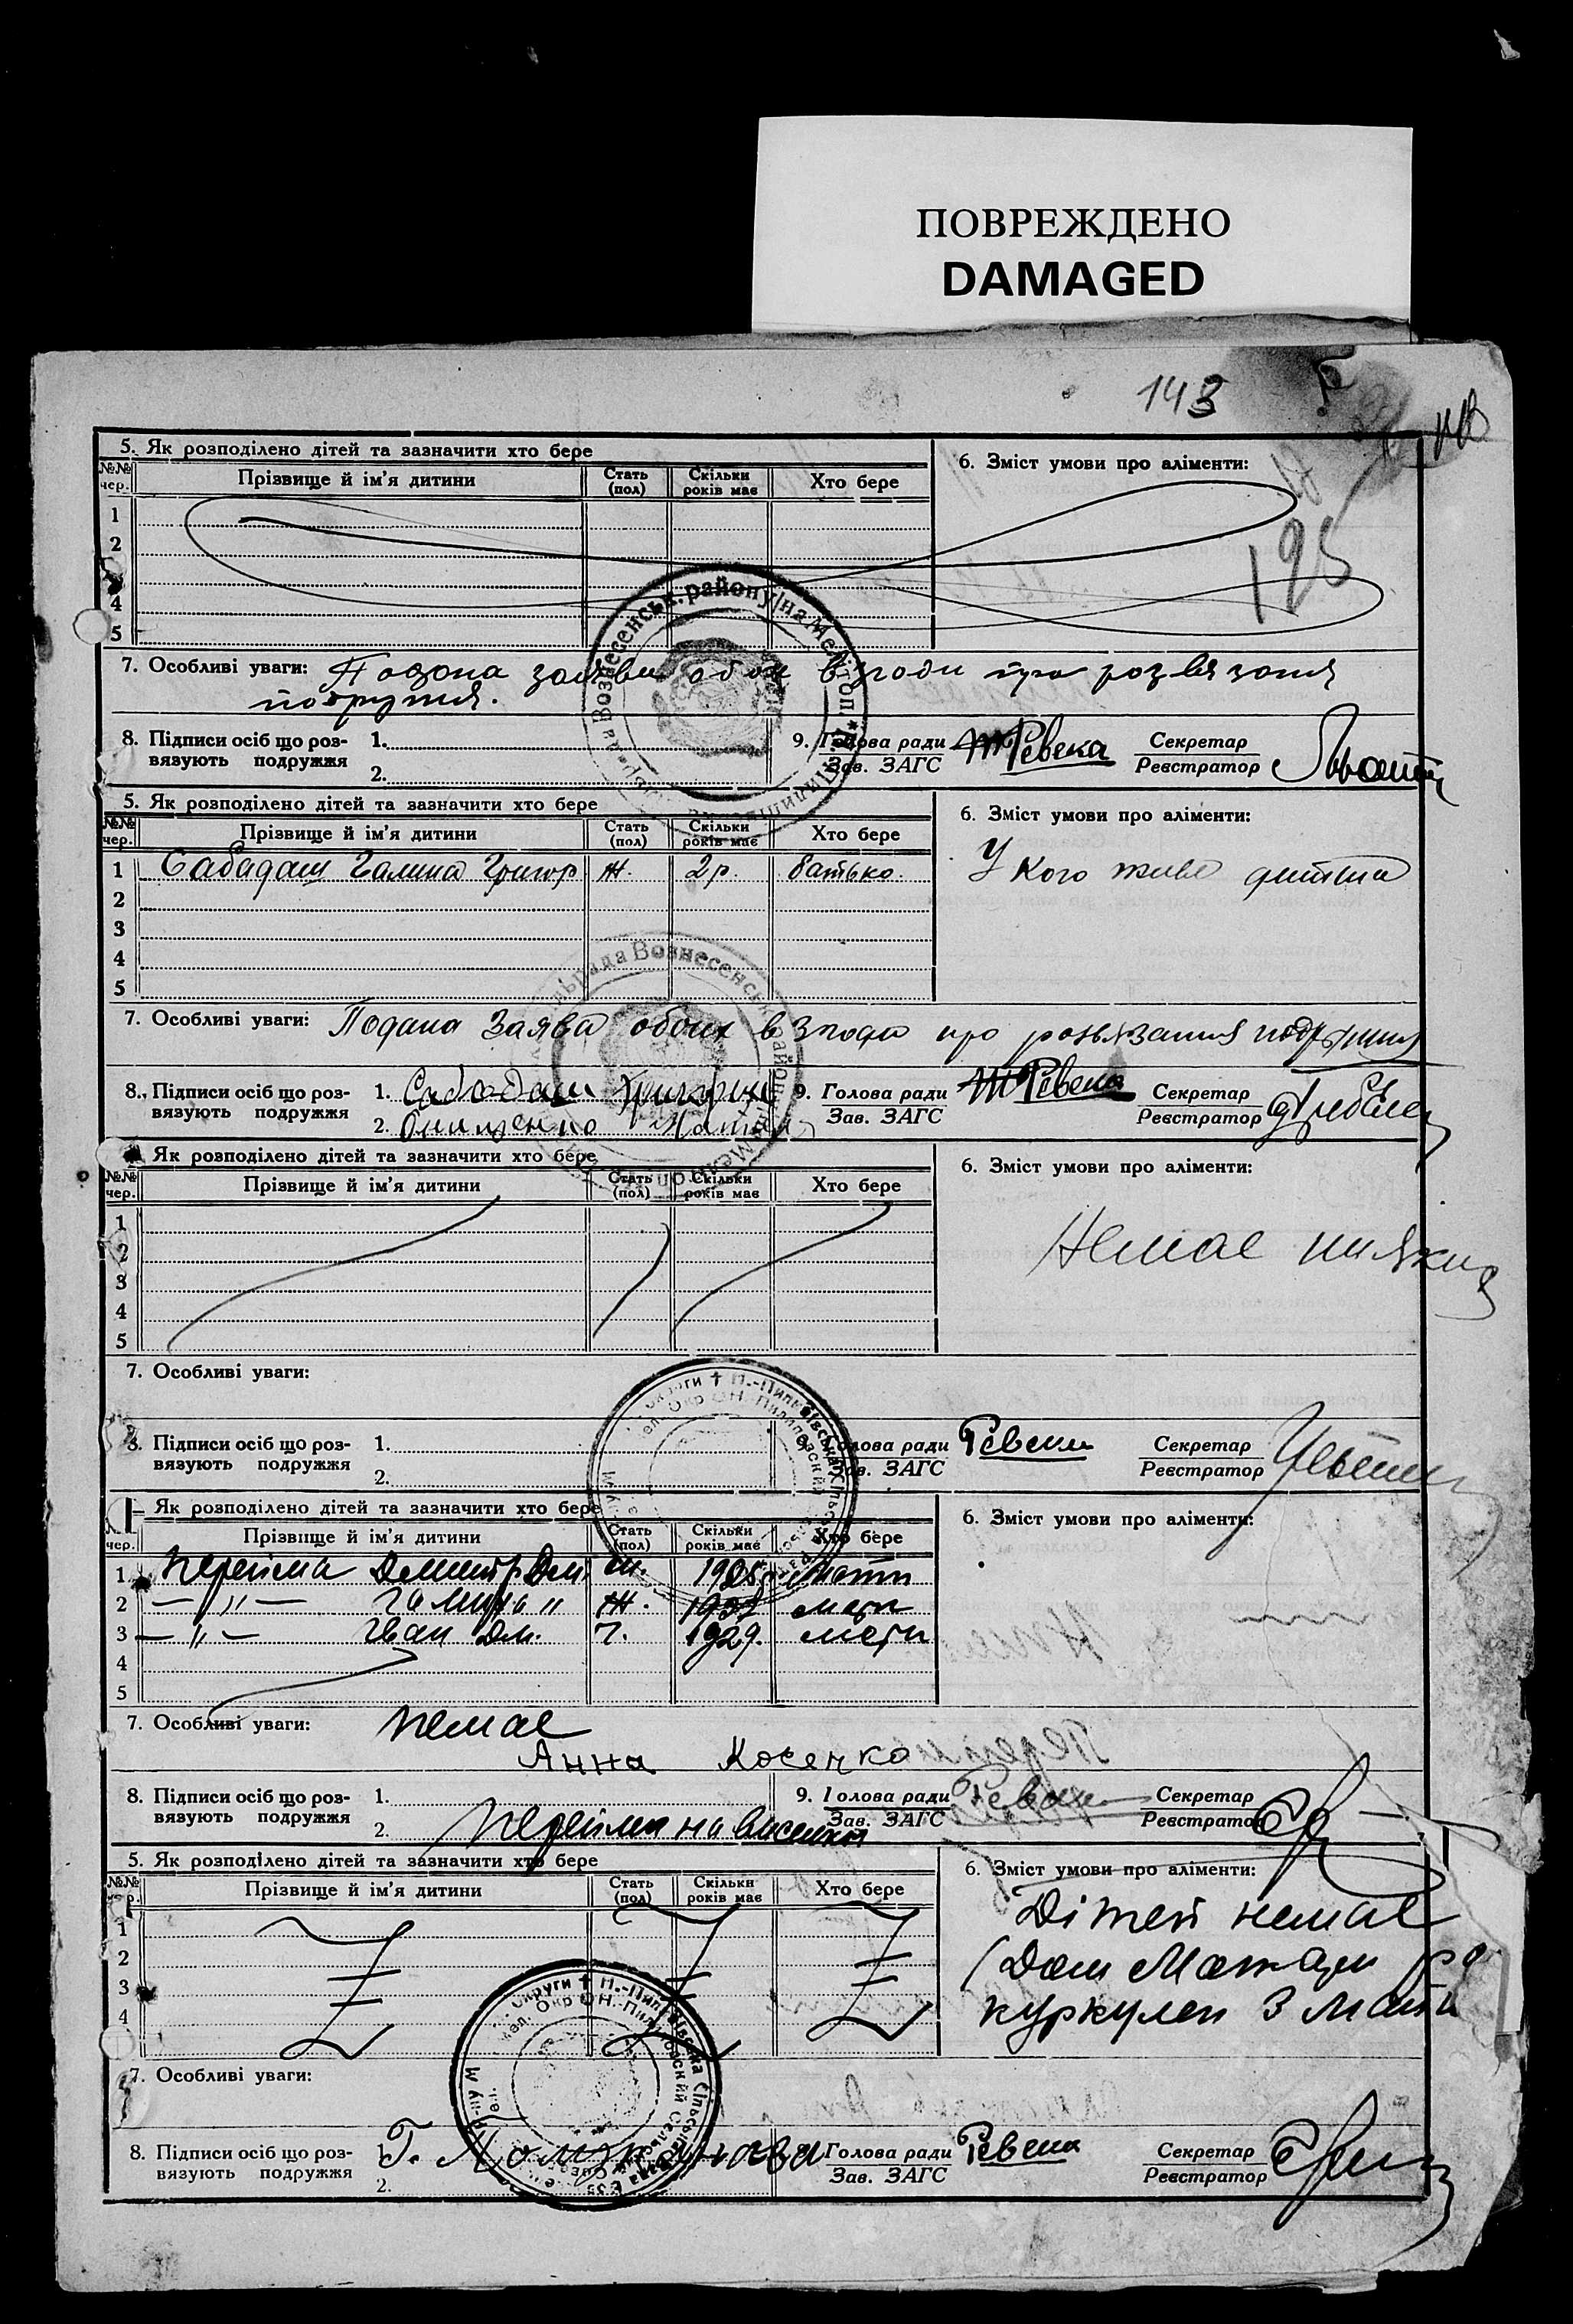 ПОВРЕЖДЕНО
DAMAGED
143
5. Як розподілено дітей та зазначити хто бере
6. Зміст умови про аліменти:
№№ чер. Прізвище й ім'я дитини Стать (пол) Скільки років має Хто бере
195
1
2
3
4
5
7. Особливі уваги: заяви обох в згоди про
подружжя.
8. Підписи осіб що роз- 1. 9. Голова ради Ревека Секретар
вязують подружжя 2. Зав. ЗАГС Реєстратор
5. Як розподілено дітей та зазначити хто бере
6. Зміст умови про аліменти:
№№ чер. Прізвище й ім'я дитини Стать (пол) Скільки років має Хто бере
1 Сабадаш Галина Григор Ж. 2 р. батько.
У кого живе дитина
2
3
4
5
7. Особливі уваги: Подана заява обоих в згоди про розвязання подружжя
8. Підписи осіб що роз- 1. Сабадаш 9. Голова ради Ревека Секретар
вязують подружжя 2. Онищенко Зав. ЗАГС Реєстратор
Як розподілено дітей та зазначити хто бере
6. Зміст умови про аліменти:
№№ чер. Прізвище й ім'я дитини Стать (пол) Скільки років має Хто бере
1
2
Немає нияких
3
4
5
7. Особливі уваги:
8. Підписи осіб що роз- 1. Голова ради Ревека Секретар
вязують подружжя 2. Зав. ЗАГС Реєстратор
Як розподілено дітей та зазначити хто бере
6. Зміст умови про аліменти:
чер. Прізвище й ім'я дитини Стать (пол) Скільки років має Хто бере
1 Перейма Дмитр Дм. мати
2 — " — Галина " Ж. мати
3 — " — Іван Дм. Ч. 1929. мати
4
5
7. Особливі уваги: немає
Анна Косенко
8. Підписи осіб що роз- 1. 9. Голова ради Ревека Секретар
вязують подружжя 2. Перейма Зав. ЗАГС Реєстратор
5. Як розподілено дітей та зазначити хто бере
6. Зміст умови про аліменти:
№№ Прізвище й ім'я дитини Стать (пол) Скільки років має Хто бере
Дітей немає
1
2
3
куркулеп з
4
7. Особливі уваги:
8. Підписи осіб що роз- Г. Голова ради Ревека Секретар
вязують подружжя 2. Зав. ЗАГС Реєстратор